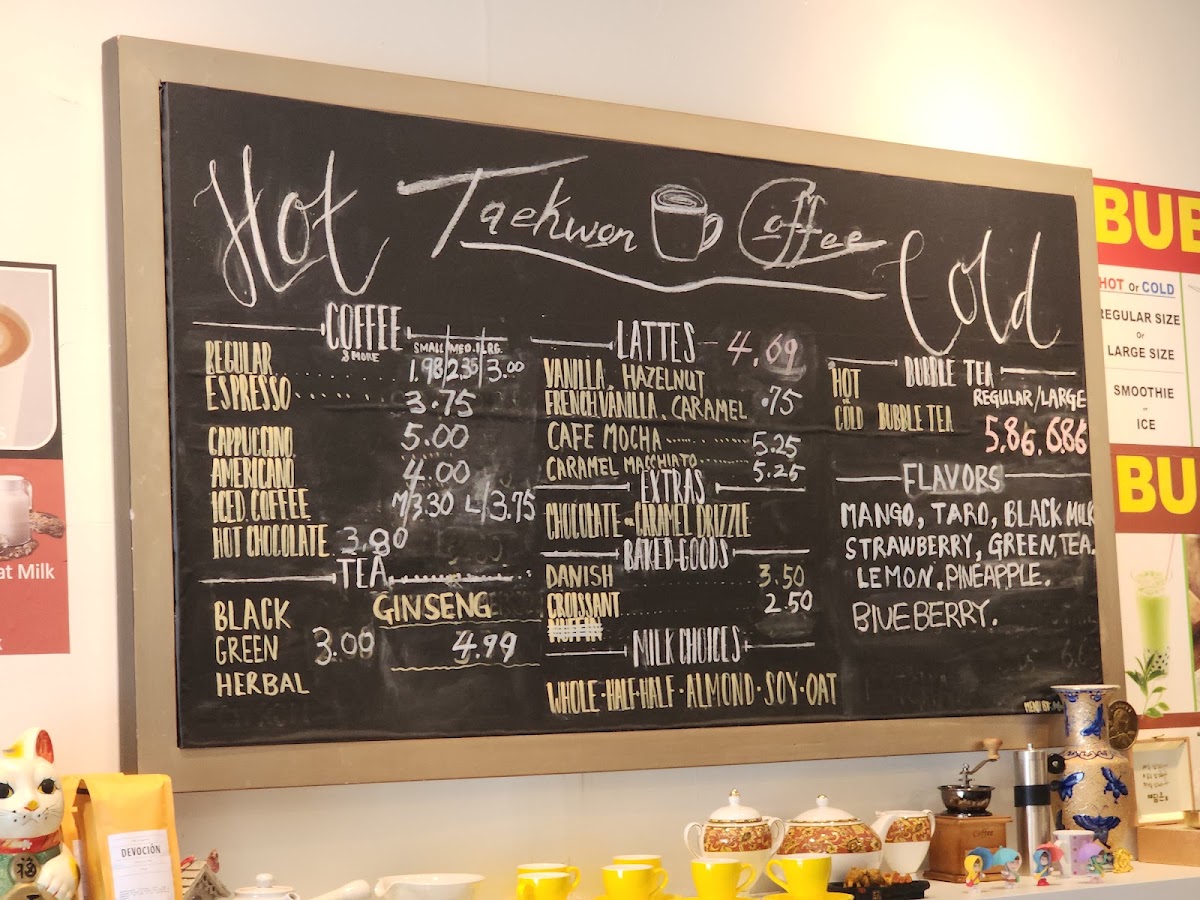 Hot
Taekwon Coffee
Cold
COFFEE
& MORE
SMALL MED. LRG.
REGULAR 1.98 2.35 3.00
ESPRESSO 3.75
CAPPUCCINO 5.00
AMERICANO 4.00
ICED COFFEE M/3.30 L/3.75
HOT CHOCOLATE 3.80
TEA
BLACK
GREEN 3.00
HERBAL
GINSENG
4.99
LATTES - 4.69
VANILLA. HAZELNUT
FRENCH VANILLA. CARAMEL .75
CAFE MOCHA 5.25
CARAMEL MACCHIATO 5.25
EXTRAS
CHOCOLATE or CARAMEL DRIZZLE
BAKED GOODS
DANISH 3.50
CROISSANT 2.50
MUFFIN
MILK CHOICES
WHOLE·HALF·HALF·ALMOND·SOY·OAT
BUBBLE TEA
HOT
REGULAR/LARGE
COLD BUBBLE TEA
5.86. 6.86
FLAVORS
MANGO, TARO, BLACK MILK
STRAWBERRY, GREEN TEA.
LEMON. PINEAPPLE.
BLUEBERRY.
MENU BY:
BUB
HOT or COLD
REGULAR SIZE
Or
LARGE SIZE
SMOOTHIE
or
ICE
BU
at Milk
DEVOCIÓN
福
Coffee